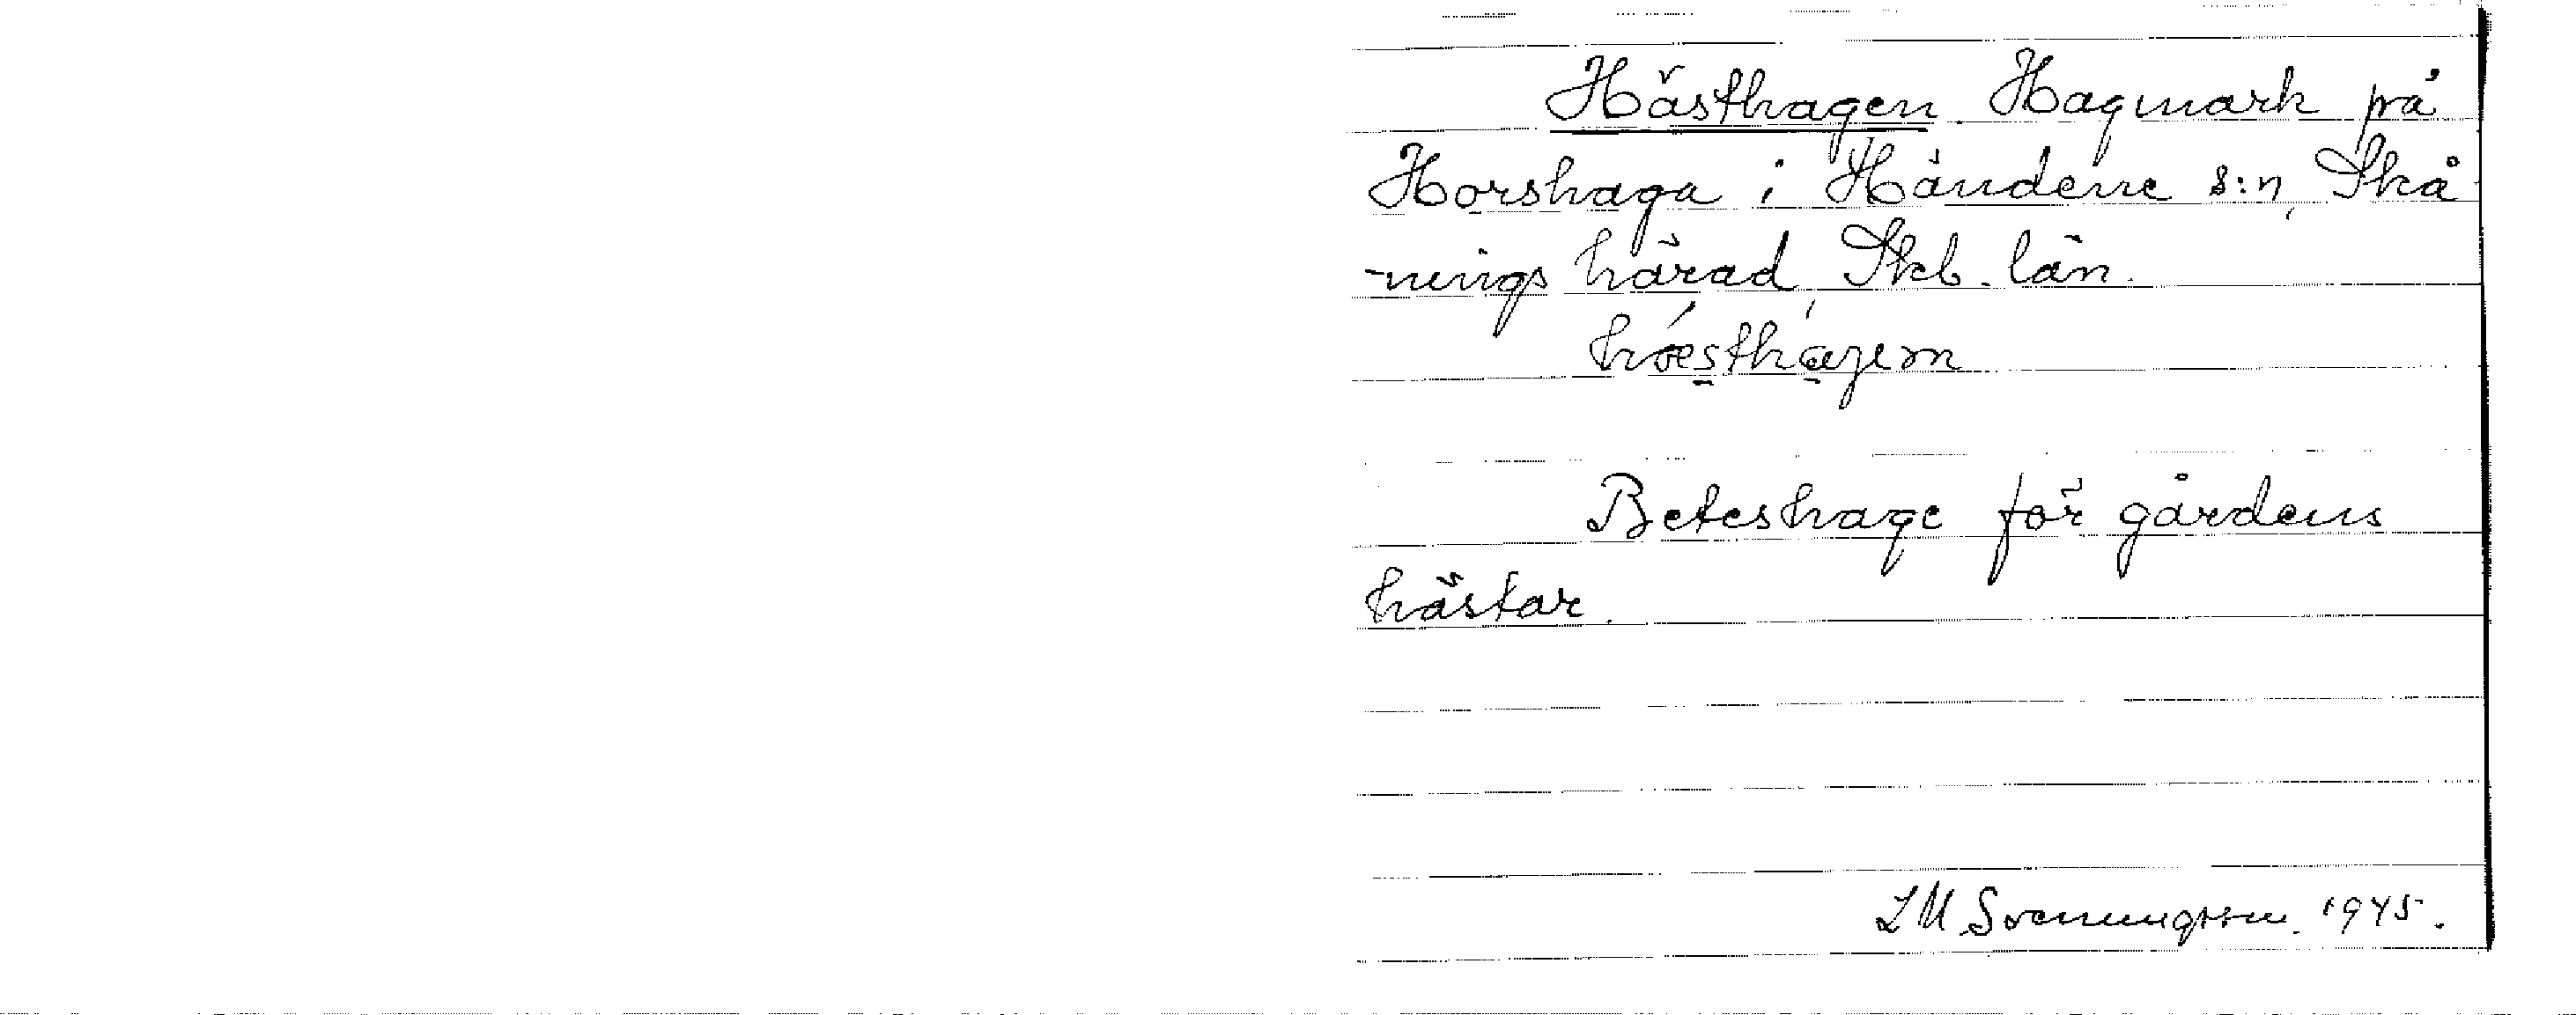 Hästhagen. Hagmark på
Horshaga i Händene s:n, Skå
-nings härad, Skb. län.
hǽsthàgen
Beteshage för gårdens
hästar.
LM Svenungsson. 1945.